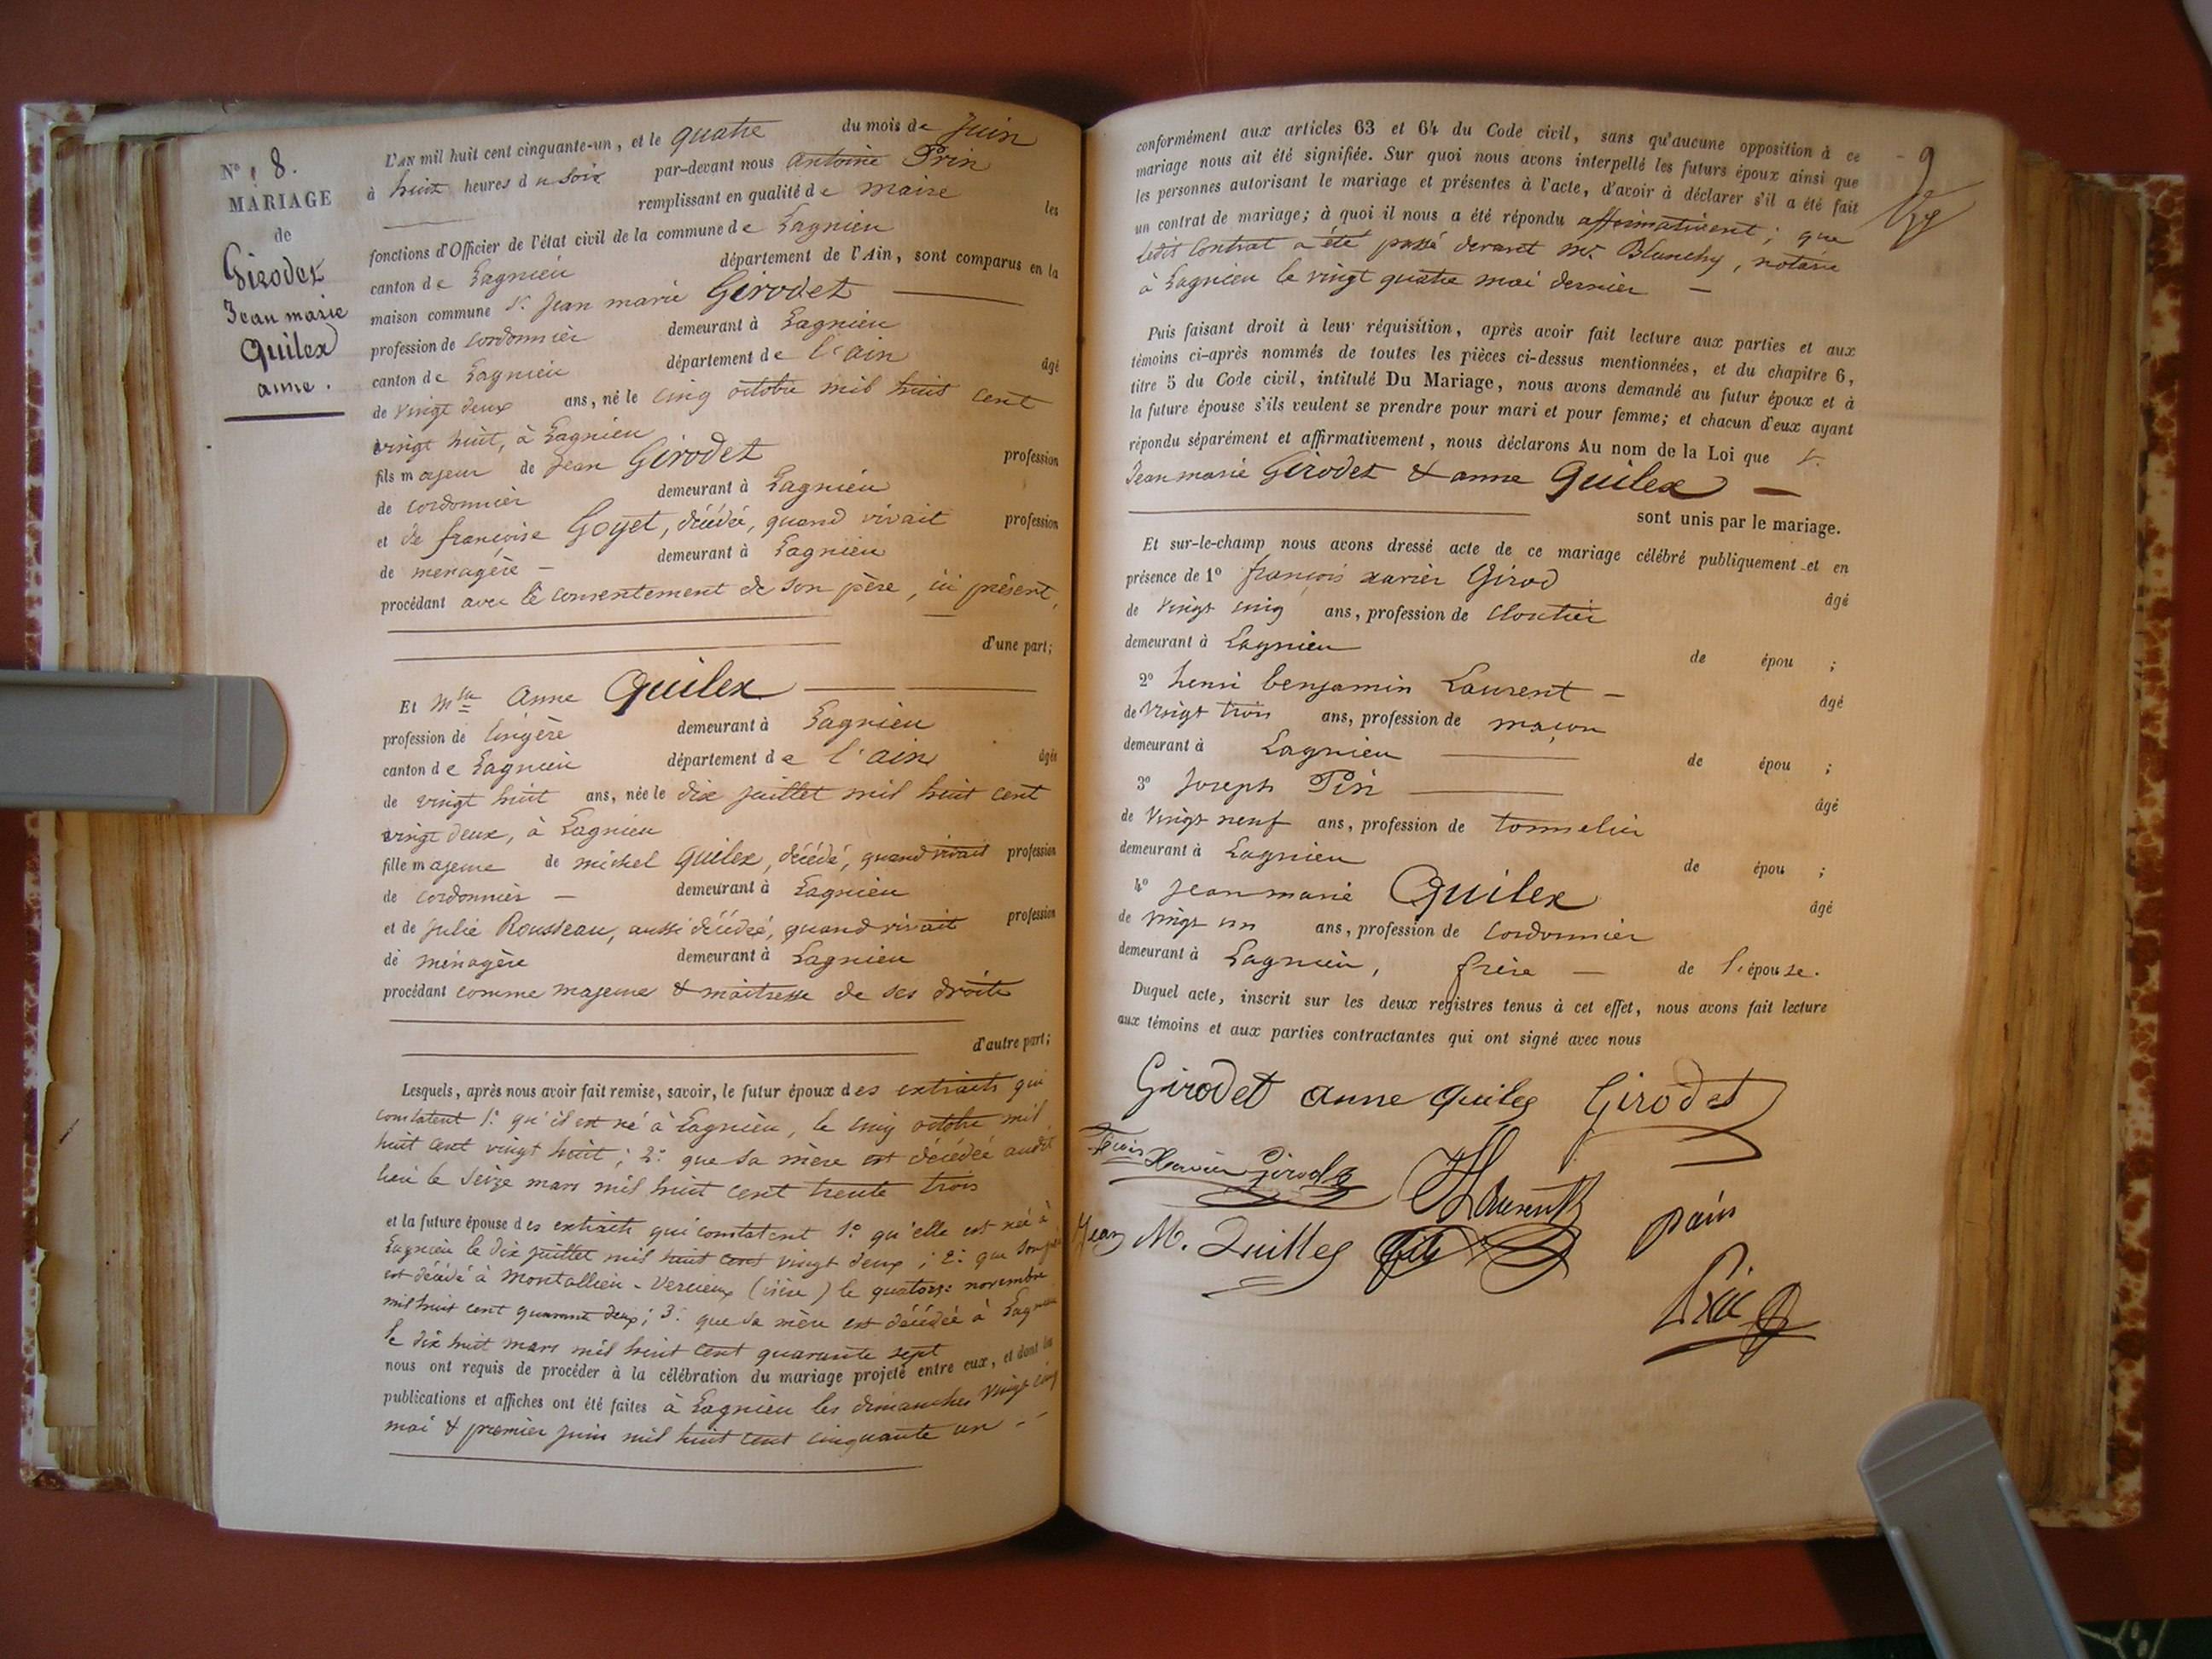 N° 8.
MARIAGE
de
Girodet
Jean marie
Quilex
anne.
L'AN mil huit cent cinquante-un, et le quatre du mois de Juin
à huit heures du soir par-devant nous antoine Prin
remplissant en qualité de maire les
fonctions d'Officier de l'état civil de la commune de Lagnieu
canton de Lagnieu département de l'Ain, sont comparus en la
maison commune S. Jean marie Girodet
profession de cordonnier demeurant à Lagnieu
canton de Lagnieu département de l'ain âgé
de vingt deux ans, né le cinq octobre mil huit cent
vingt huit, à Lagnieu
fils majeur de Jean Girodet profession
de cordonnier demeurant à Lagnieu
et de françoise Goyet, décédée, quand vivait profession
de menagère demeurant à Lagnieu
procédant avec le consentement de son père, ici présent,
d'une part;
Et Mlle Anne Quilex
profession de lingère demeurant à Lagnieu
canton de Lagnieu département de l'ain âgée
de vingt huit ans, née le dix juillet mil huit cent
vingt deux, à Lagnieu
fille majeure de michel Quilex, décédé, quand vivait profession
de cordonnier demeurant à Lagnieu
et de julie Rousseau, aussi décédée, quand vivait profession
de ménagère demeurant à Lagnieu
procédant comme majeure & maitresse de ses droits
d'autre part;
Lesquels, après nous avoir fait remise, savoir, le futur époux des extraits qui
constatent 1° qu'il est né à Lagnieu, le cinq octobre mil
huit cent vingt huit; 2° que sa mère est décédée audit
lieu le seize mars mil huit cent trente trois
et la future épouse des extraits qui constatent 1° qu'elle est née à
Lagnieu le dix juillet mil huit cent vingt deux; 2° que son père
est décédé à Montallieu-Vercieux (isère) le quatorze novembre
mil huit cent quarante deux; 3° que sa mère est décédée à Lagnieu
le dix huit mars mil huit cent quarante sept
nous ont requis de procéder à la célébration du mariage projeté entre eux, et dont les
publications et affiches ont été faites à Lagnieu les dimanches vingt cinq
mai & premier juin mil huit cent cinquante un
9
conformément aux articles 63 et 64 du Code civil, sans qu'aucune opposition à ce
mariage nous ait été signifiée. Sur quoi nous avons interpellé les futurs époux ainsi que
les personnes autorisant le mariage et présentes à l'acte, d'avoir à déclarer s'il a été fait
un contrat de mariage; à quoi il nous a été répondu affirmativement; que
ledit contrat a été passé devant Me. Blanchy, notaire
à Lagnieu le vingt quatre mai dernier
Puis faisant droit à leur réquisition, après avoir fait lecture aux parties et aux
témoins ci-après nommés de toutes les pièces ci-dessus mentionnées, et du chapitre 6,
titre 5 du Code civil, intitulé Du Mariage, nous avons demandé au futur époux et à
la future épouse s'ils veulent se prendre pour mari et pour femme; et chacun d'eux ayant
répondu séparément et affirmativement, nous déclarons Au nom de la Loi que S.
Jean marie Girodet & anne Quilex
sont unis par le mariage.
Et sur-le-champ nous avons dressé acte de ce mariage célébré publiquement et en
présence de 1° françois xavier Girod âgé
de vingt cinq ans, profession de cloutier
demeurant à Lagnieu de épou ;
2° henri benjamin Laurent âgé
de vingt trois ans, profession de maçon
demeurant à Lagnieu de épou ;
3° Joseph Pin âgé
de vingt neuf ans, profession de tonnelier
demeurant à Lagnieu de épou ;
4° jean marie Quilex âgé
de vingt un ans, profession de cordonnier
demeurant à Lagnieu, frère de l'épouse.
Duquel acte, inscrit sur les deux registres tenus à cet effet, nous avons fait lecture
aux témoins et aux parties contractantes qui ont signé avec nous
Girodet anne quileg Girodet
Xavier Girod HLaurent
Jean M. Quilleg fils pain